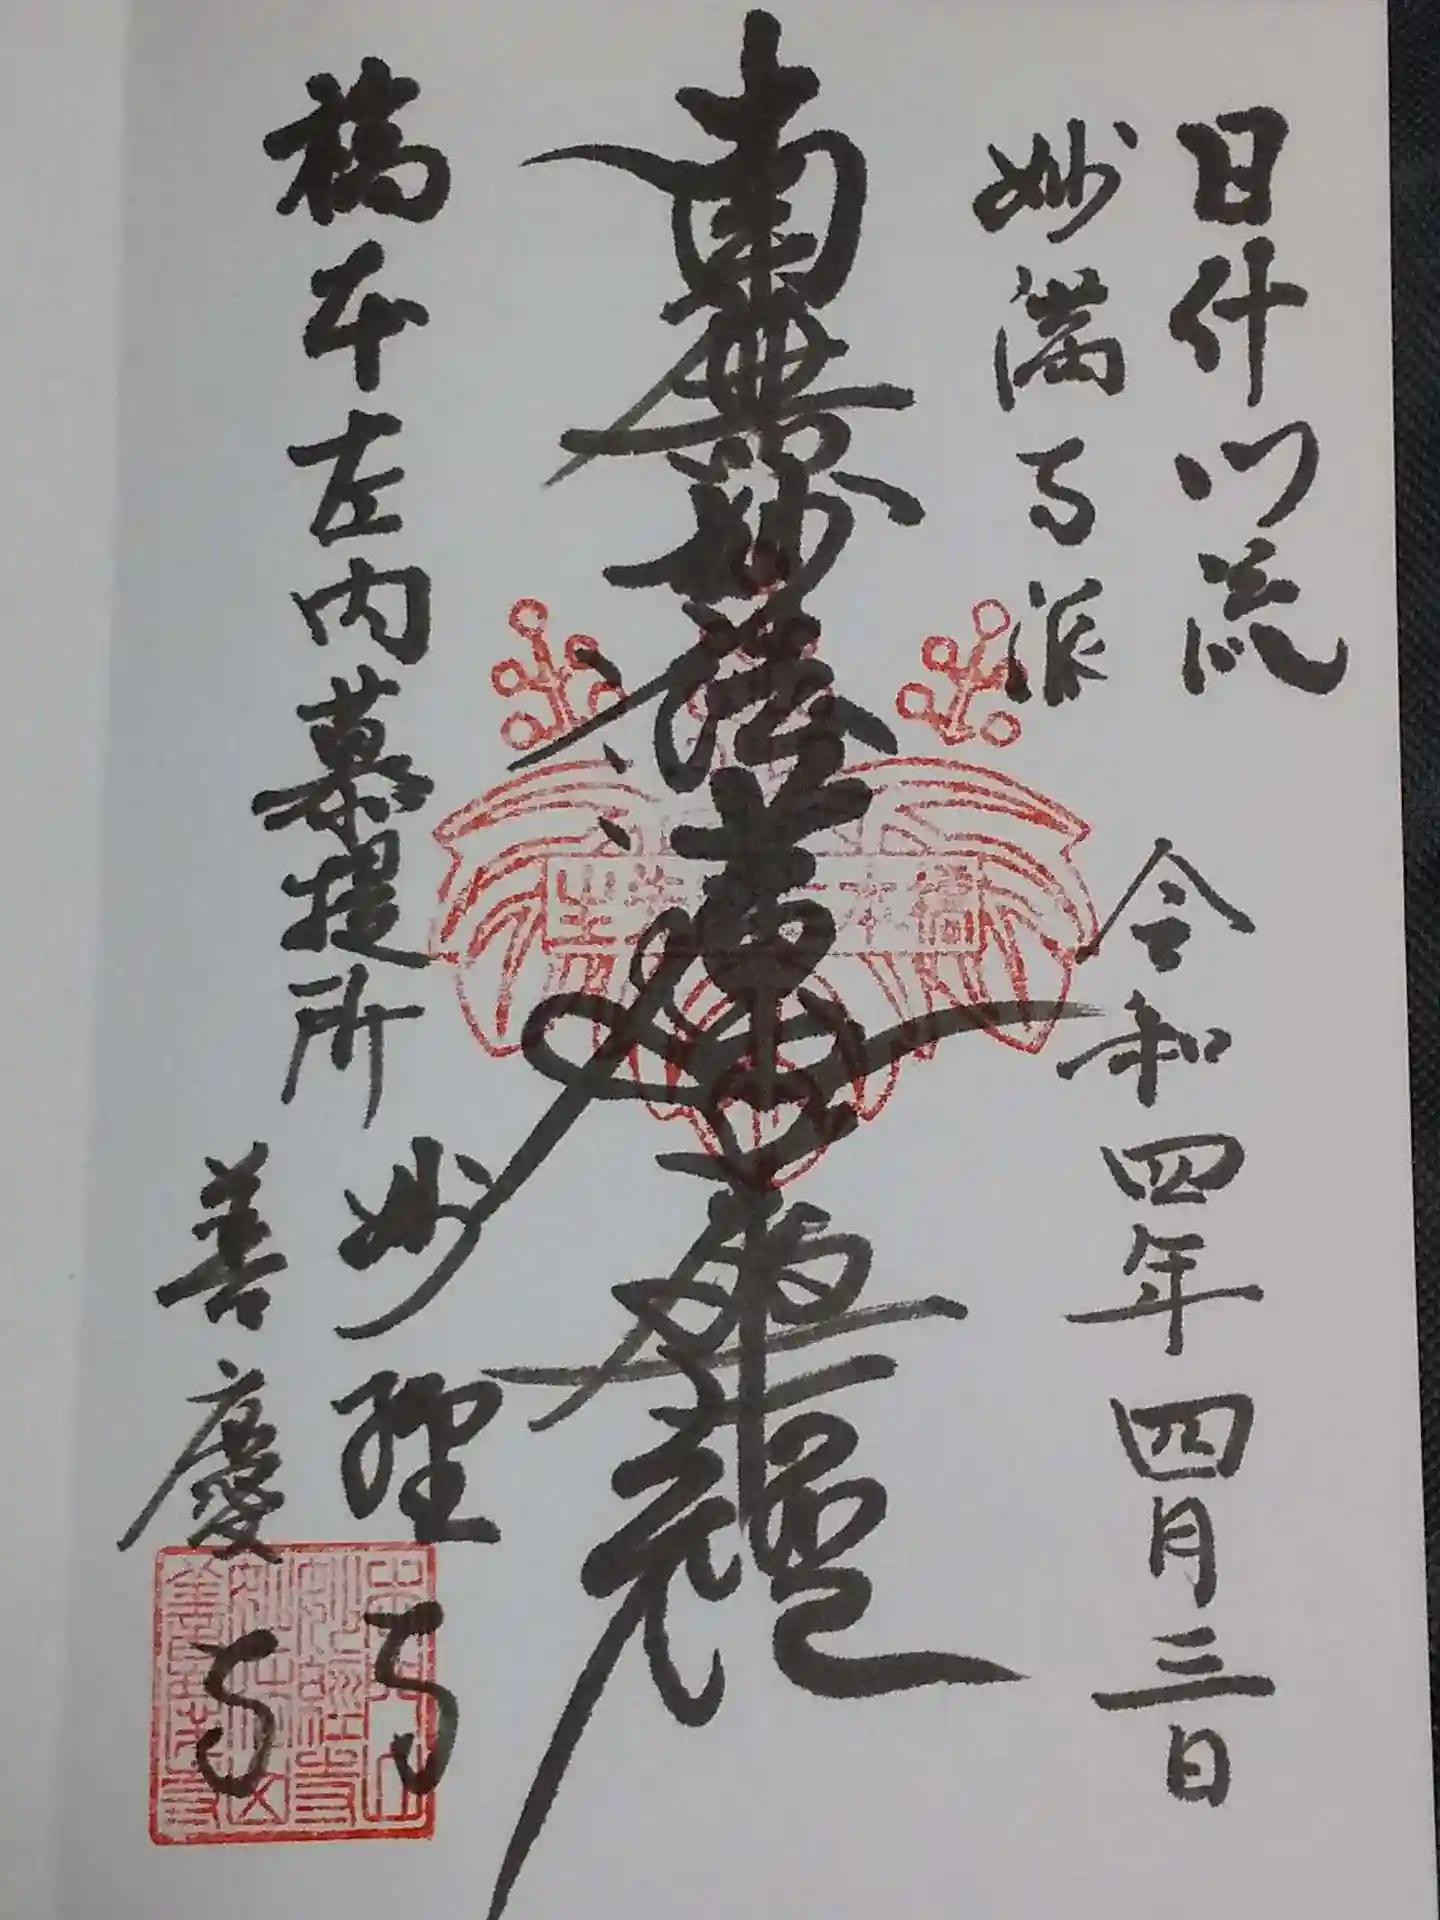 日什門流
妙満寺派
令和四年四月三日
南無妙法蓮華経
橋本左内慕提所
妙経寺
善慶寺